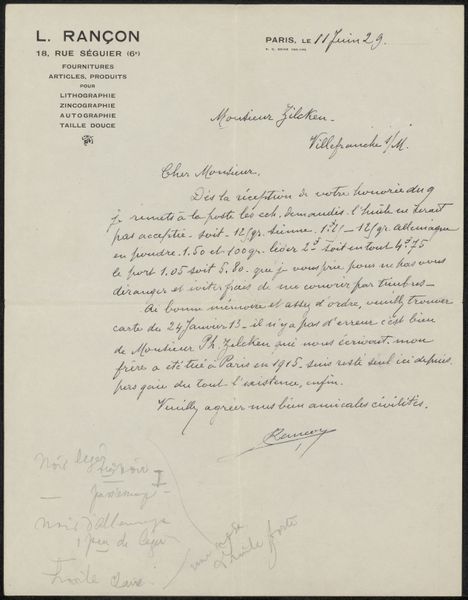 L. RANÇON
18, RUE SÉGUIER (6e)
FOURNITURES
ARTICLES, PRODUITS
POUR
LITHOGRAPHIE
ZINCOGRAPHIE
AUTOGRAPHIE
TAILLE DOUCE
PARIS, LE 11 Juin 29.
Monsieur Zilcken.
Villefranche s/M.
Cher Monsieur,
Dès la réception de votre honorée du 9
je remets à la poste les ech. demandés. l'huile ne serait
pas acceptée. soit 12 gr. sienne 12 gr. allemagne
en poudre. 1.50 et 100 gr. léger soit en tout 4.75
le port 1.05 soit 5.80. que je vous prie pour ne pas vous
déranger et éviter frais de me couvrir par timbres—
As bonne mémoire et assez d'ordre, veuillez trouver
carte du 24 Janvier 13— il n'y a pas d'erreur c'est bien
de Monsieur Ph. Zilcken que nous écrivait. mon
frère a été tué à Paris en 1915. suis resté seul ici depuis.
pas gaie du tout l'existence, enfin.
Veuillez agréer mes bien amicales civilités.
Rançon
Noir léger
noir
Noir d'Allemagne
1 peu de léger